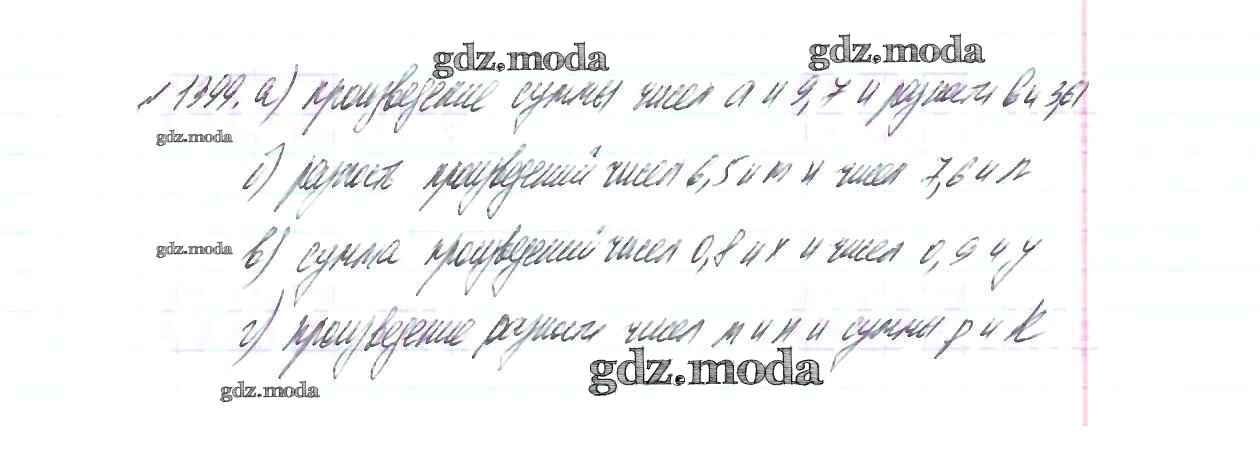 gdz.moda
gdz.moda
№ 1399. а) произведение суммы чисел а и 9,7 и разности b и 3,61
gdz.moda
б) разность произведений чисел 6,5 и m и чисел 7,6 и n
gdz.moda
в) сумма произведений чисел 0,8 и x и чисел 0,9 и y
г) произведение разности чисел m и n и суммы p и k
gdz.moda
gdz.moda